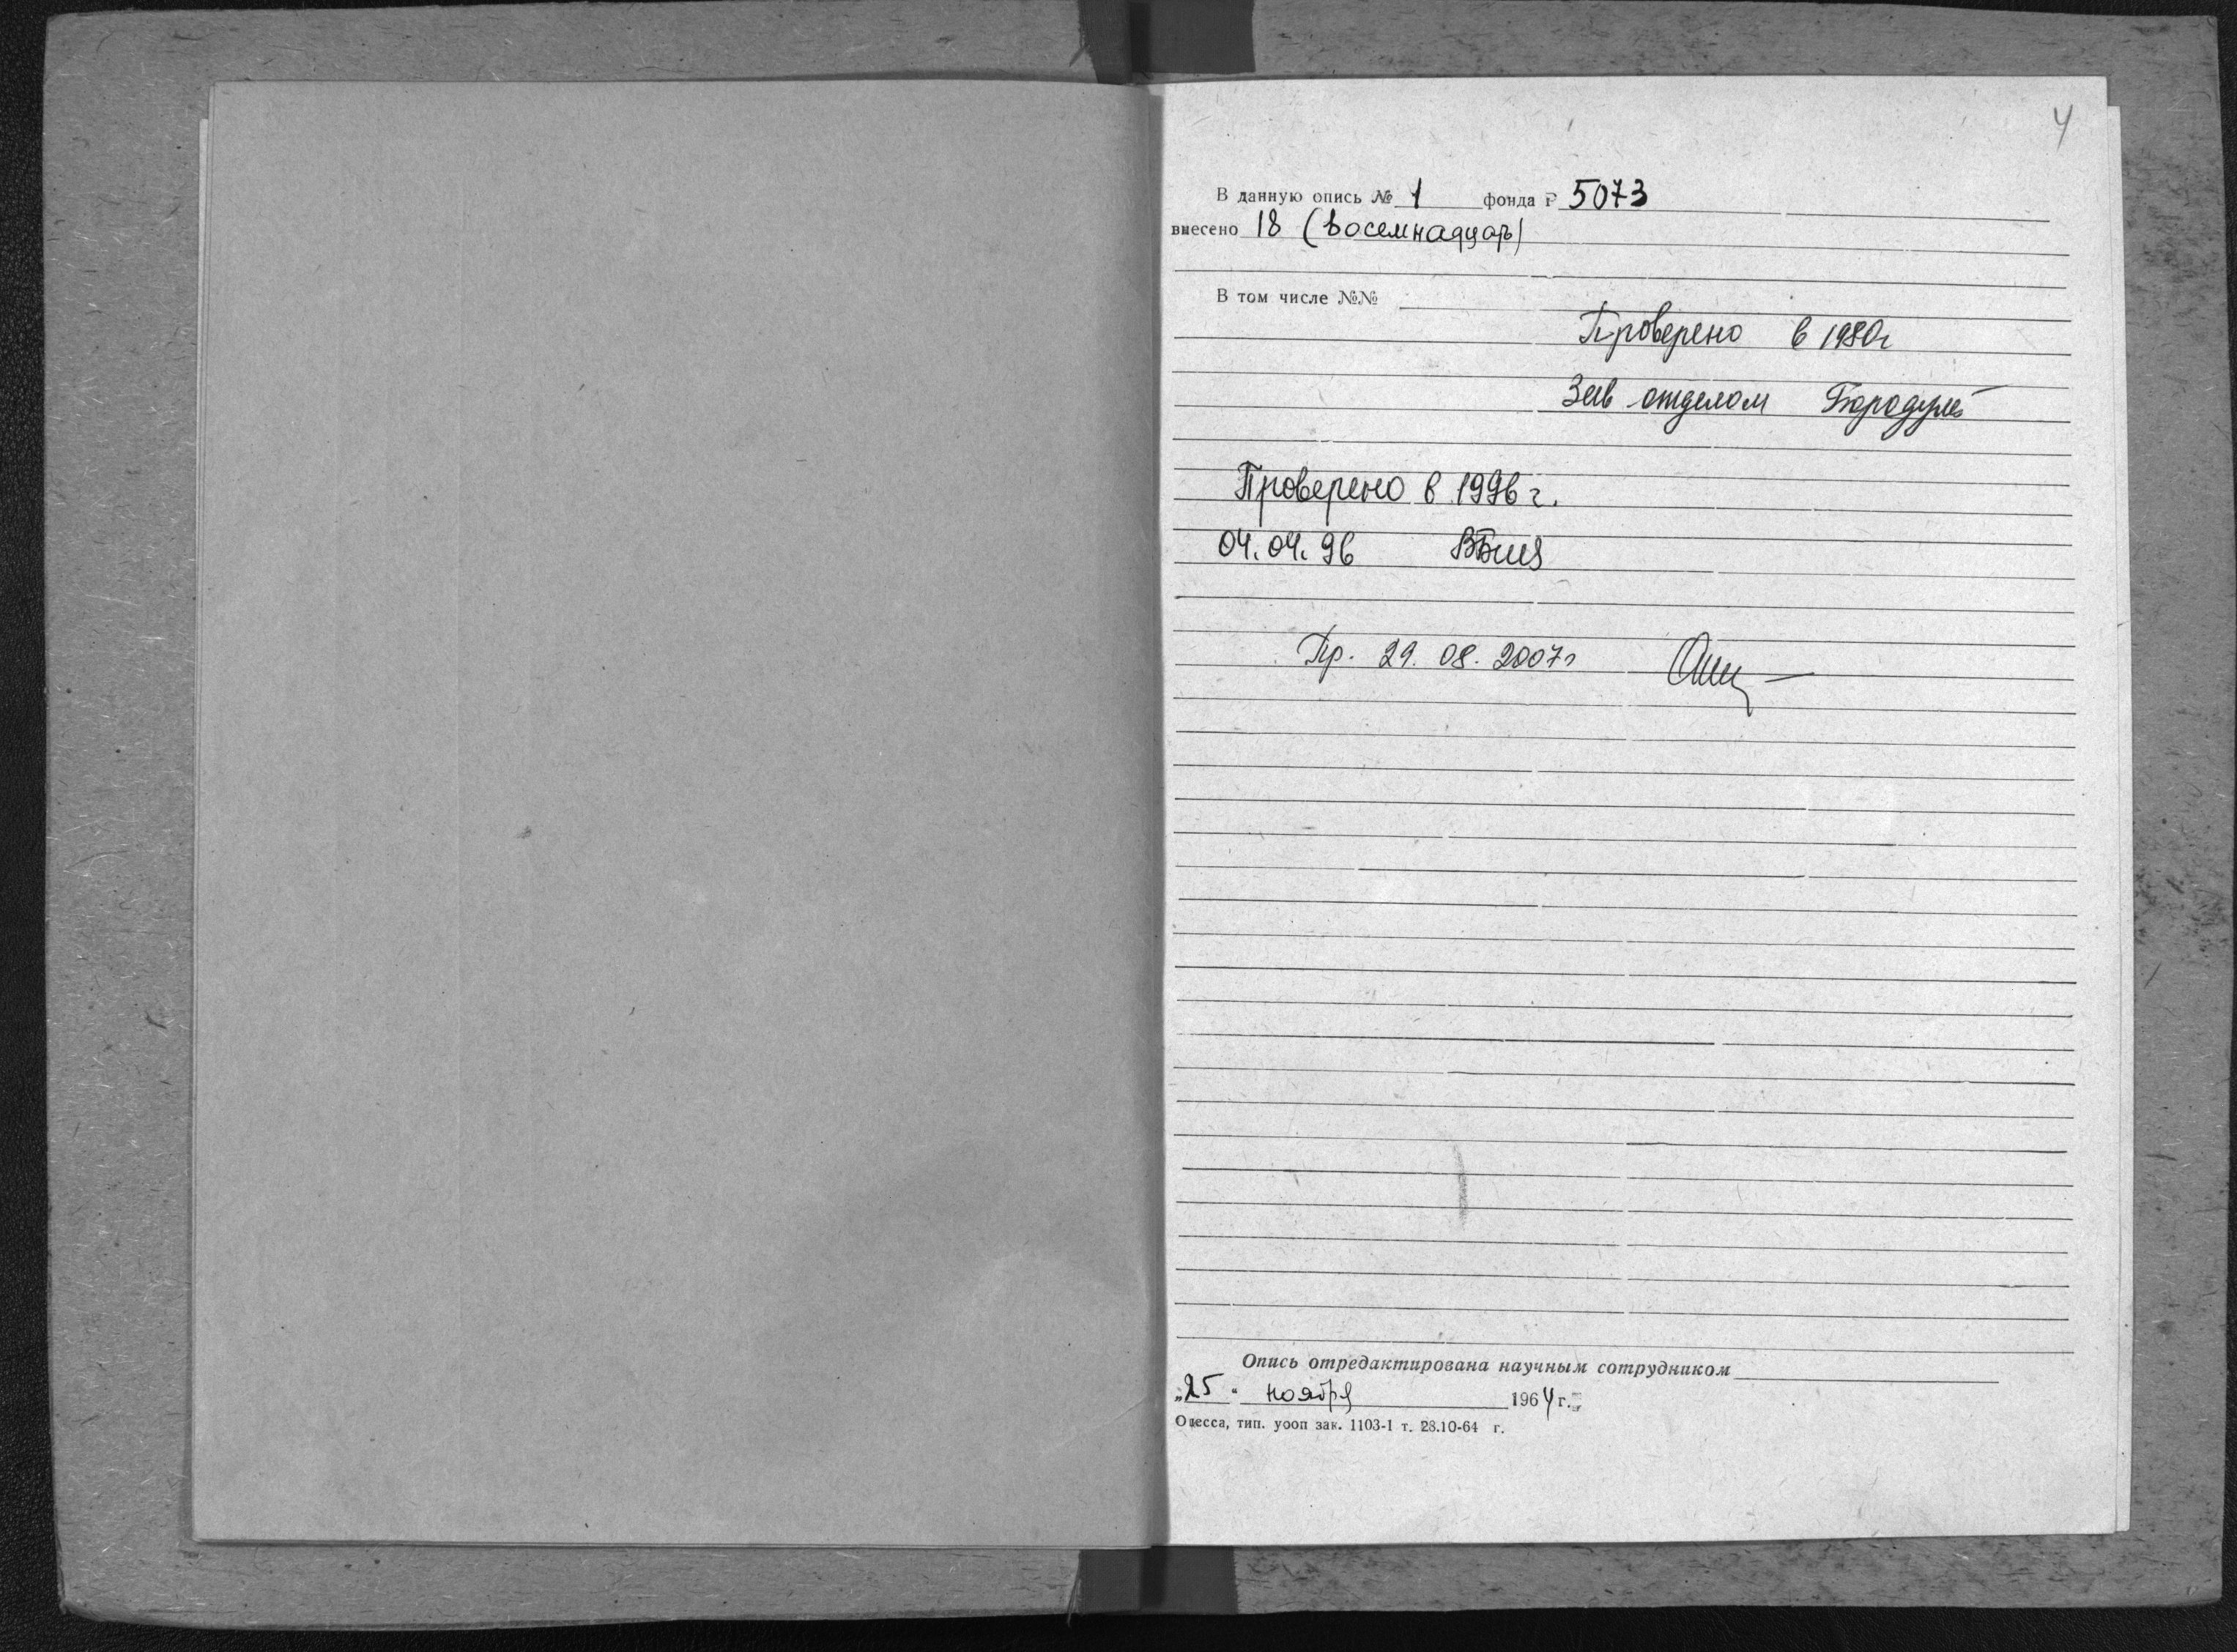 4
В данную опись № 1 фонда Р 5073
внесено 18 (восемнадцать)
В том числе №№
Проверено в 1980г
Зав отделом
Проверено в 1996 г.
04.04.96
Пр. 29.08.2007г
Опись отредактирована научным сотрудником
„25" ноября 1964 г.
Одесса, тип. уооп зак. 1103-1 т. 28.10-64 г.